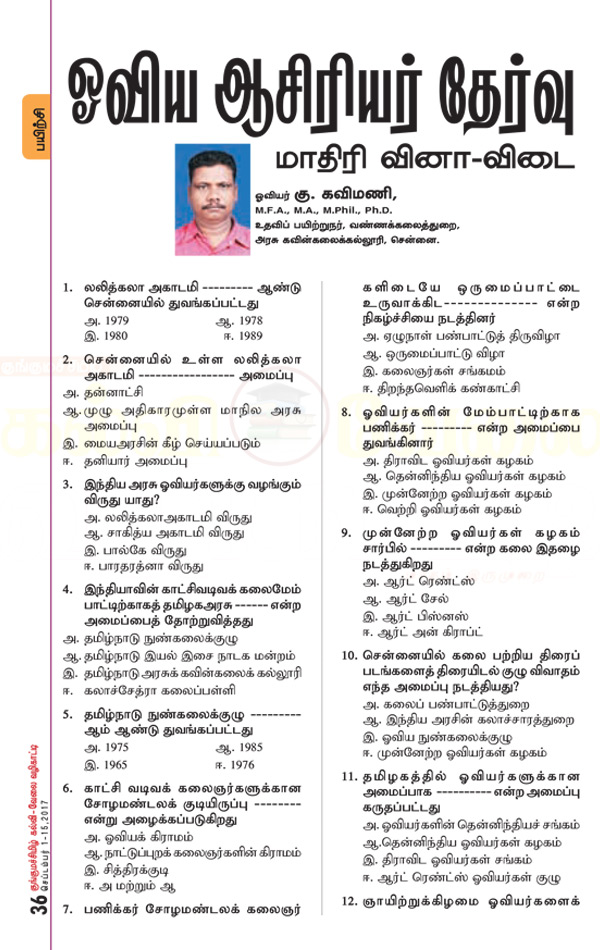 பயிற்சி
ஓவிய ஆசிரியர் தேர்வு
மாதிரி வினா-விடை
ஓவியர் கு. கவிமணி,
M.F.A., M.A., M.Phil., Ph.D.
உதவிப் பயிற்றுநர், வண்ணக்கலைத்துறை,
அரசு கவின்கலைக்கல்லூரி, சென்னை.
1. லலித்கலா அகாடமி --------- ஆண்டு
சென்னையில் துவங்கப்பட்டது
அ. 1979 ஆ. 1978
இ. 1980 ஈ. 1989
2. சென்னையில் உள்ள லலித்கலா
அகாடமி ----------------- அமைப்பு
அ. தன்னாட்சி
ஆ. முழு அதிகாரமுள்ள மாநில அரசு
அமைப்பு
இ. மையஅரசின் கீழ் செய்யப்படும்
ஈ. தனியார் அமைப்பு
3. இந்திய அரசு ஓவியர்களுக்கு வழங்கும்
விருது யாது?
அ. லலித்கலாஅகாடமி விருது
ஆ. சாகித்ய அகாடமி விருது
இ. பால்கே விருது
ஈ. பாரதரத்னா விருது
4. இந்தியாவின் காட்சிவடிவக் கலைமேம்
பாட்டிற்காகத் தமிழகஅரசு ------ என்ற
அமைப்பைத் தோற்றுவித்தது
அ. தமிழ்நாடு நுண்கலைக்குழு
ஆ. தமிழ்நாடு இயல் இசை நாடக மன்றம்
இ. தமிழ்நாடு அரசுக் கவின்கலைக் கல்லூரி
ஈ. கலாச்சேத்ரா கலைப்பள்ளி
5. தமிழ்நாடு நுண்கலைக்குழு ---------
ஆம் ஆண்டு துவங்கப்பட்டது
அ. 1975 ஆ. 1985
இ. 1965 ஈ. 1976
6. காட்சி வடிவக் கலைஞர்களுக்கான
சோழமண்டலக் குடியிருப்பு --------
என்று அழைக்கப்படுகிறது
அ. ஓவியக் கிராமம்
ஆ. நாட்டுப்புறக் கலைஞர்களின் கிராமம்
இ. சித்திரக்குடி
ஈ. அ மற்றும் ஆ
7. பணிக்கர் சோழமண்டலக் கலைஞர்
களிடையே ஒருமைப்பாட்டை
உருவாக்கிட-------------- என்ற
நிகழ்ச்சியை நடத்தினர்
அ. ஏழுநாள் பண்பாட்டுத் திருவிழா
ஆ. ஒருமைப்பாட்டு விழா
இ. கலைஞர்கள் சங்கமம்
ஈ. திறந்தவெளிக் கண்காட்சி
8. ஓவியர்களின் மேம்பாட்டிற்காக
பணிக்கர் --------- என்ற அமைப்பை
துவங்கினார்
அ. திராவிட ஓவியர்கள் கழகம்
ஆ. தென்னிந்திய ஓவியர்கள் கழகம்
இ. முன்னேற்ற ஓவியர்கள் கழகம்
ஈ. வெற்றி ஓவியர்கள் கழகம்
9. முன்னேற்ற ஓவியர்கள் கழகம்
சார்பில் --------- என்ற கலை இதழை
நடத்துகிறது
அ. ஆர்ட் ரெண்ட்ஸ்
ஆ. ஆர்ட் சேல்
இ. ஆர்ட் பிஸ்னஸ்
ஈ. ஆர்ட் அன் கிராப்ட்
10. சென்னையில் கலை பற்றிய திரைப்
படங்களைத் திரையிடல் குழு விவாதம்
எந்த அமைப்பு நடத்தியது?
அ. கலைப் பண்பாட்டுத்துறை
ஆ. இந்திய அரசின் கலாச்சாரத்துறை
இ. ஓவிய நுண்கலைக்குழு
ஈ. முன்னேற்ற ஓவியர்கள் கழகம்
11. தமிழகத்தில் ஓவியர்களுக்கான
அமைப்பாக ----------என்ற அமைப்பு
கருதப்பட்டது
அ. ஓவியர்களின் தென்னிந்தியச் சங்கம்
ஆ.தென்னிந்திய ஓவியர்கள் கழகம்
இ. திராவிட ஓவியர்கள் சங்கம்
ஈ. ஆர்ட் ரெண்ட்ஸ் ஓவியர்கள் குழு
12. ஞாயிற்றுக்கிழமை ஓவியர்களைக்
36 குங்குமச்சிமிழ் கல்வி-வேலை வழிகாட்டி
செப்டம்பர் 1-15, 2017